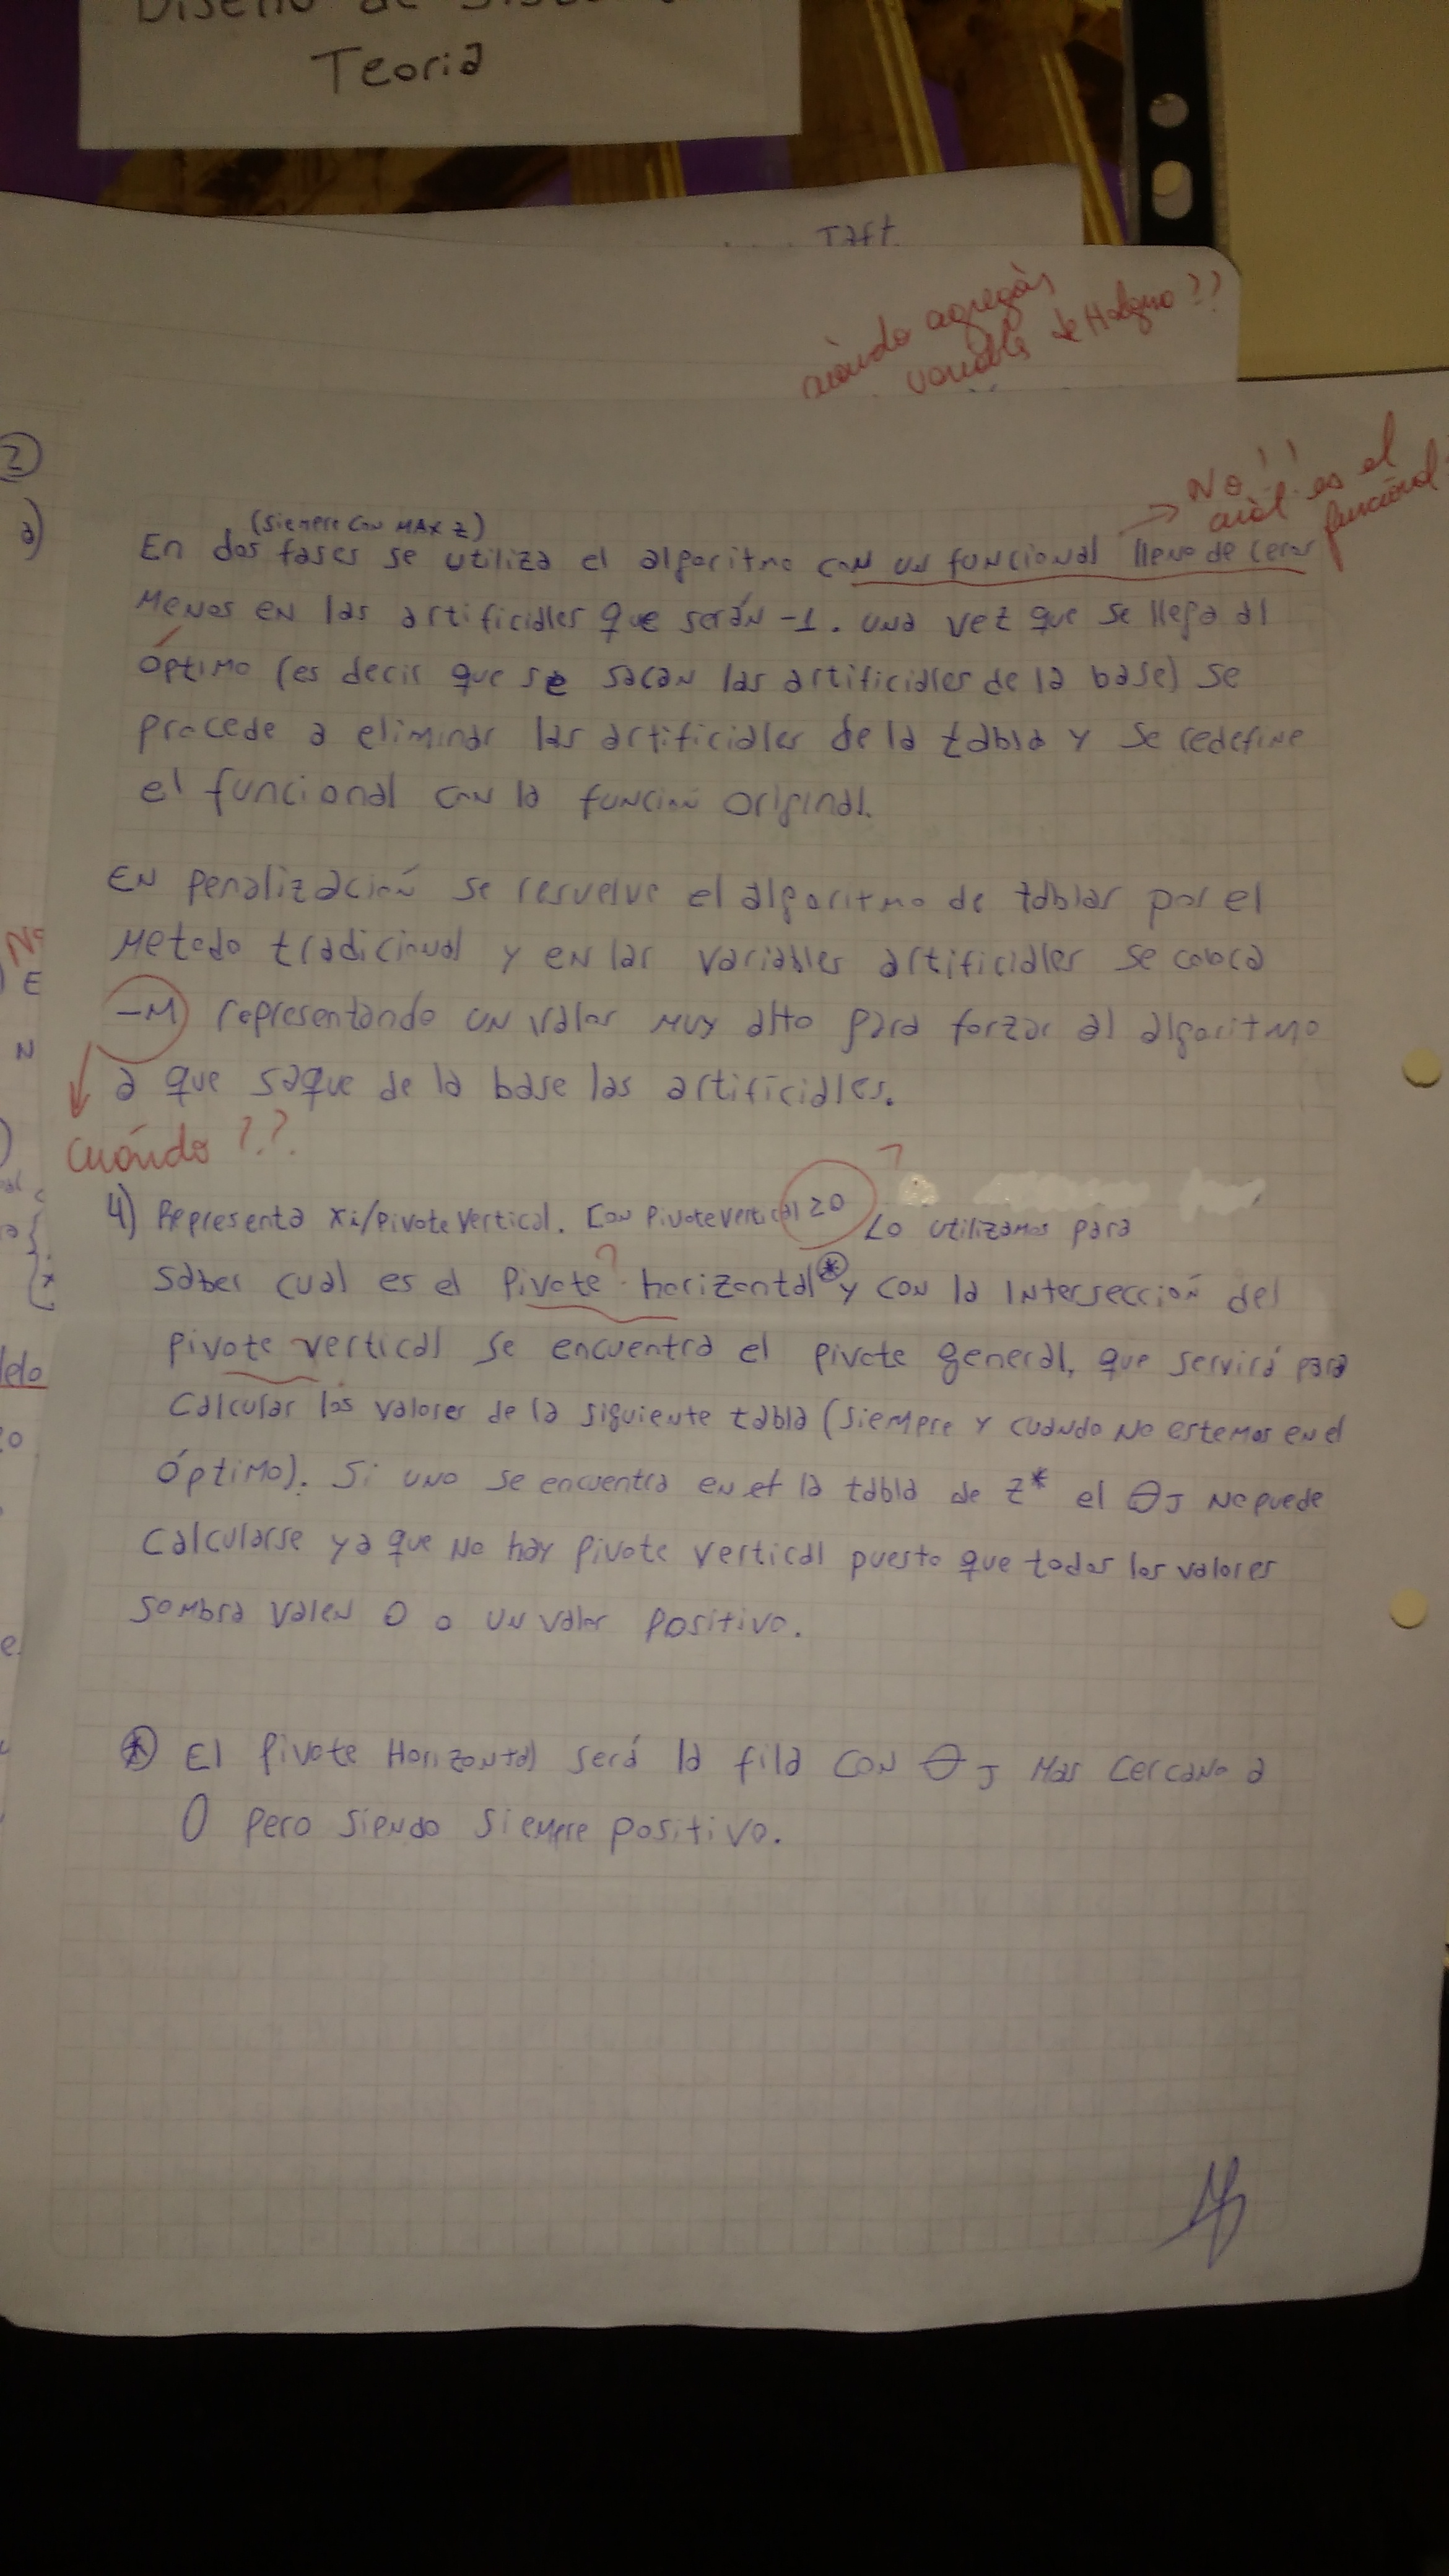 Diseño de
Teoria
Taft
agregás
variable de Holgura??
No!!
cuál es el
funcional
2
a)
(siempre con MAX Z)
En dos fases se utiliza el algoritmo con un funcional lleno de ceros
menos en las artificiales que serán -1. una vez que se llega al
óptimo (es decir que se sacan las artificiales de la base) se
procede a eliminar las artificiales de la tabla y se redefine
el funcional con la función original.
En penalización se resuelve el algoritmo de tablas por el
metodo tradicional y en las variables artificiales se coloca
-M representando un valor muy alto para forzar al algoritmo
a que saque de la base las artificiales.
Cuándo??
4) Representa xi/pivote vertical. Con pivote vertical ≥0 Lo utilizamos para
?
saber cual es el pivote horizontal * y con la intersección del
?
pivote vertical se encuentra el pivote general, que servirá para
calcular los valores de la siguiente tabla (siempre y cuando no estemos en el
óptimo). Si uno se encuentra en la tabla de Z* el θJ no puede
calcularse ya que no hay pivote vertical puesto que todos los valores
sombra valen 0 o un valor positivo.
* El pivote Horizontal será la fila con θJ mas cercano a
0 pero siendo siempre positivo.
E
N